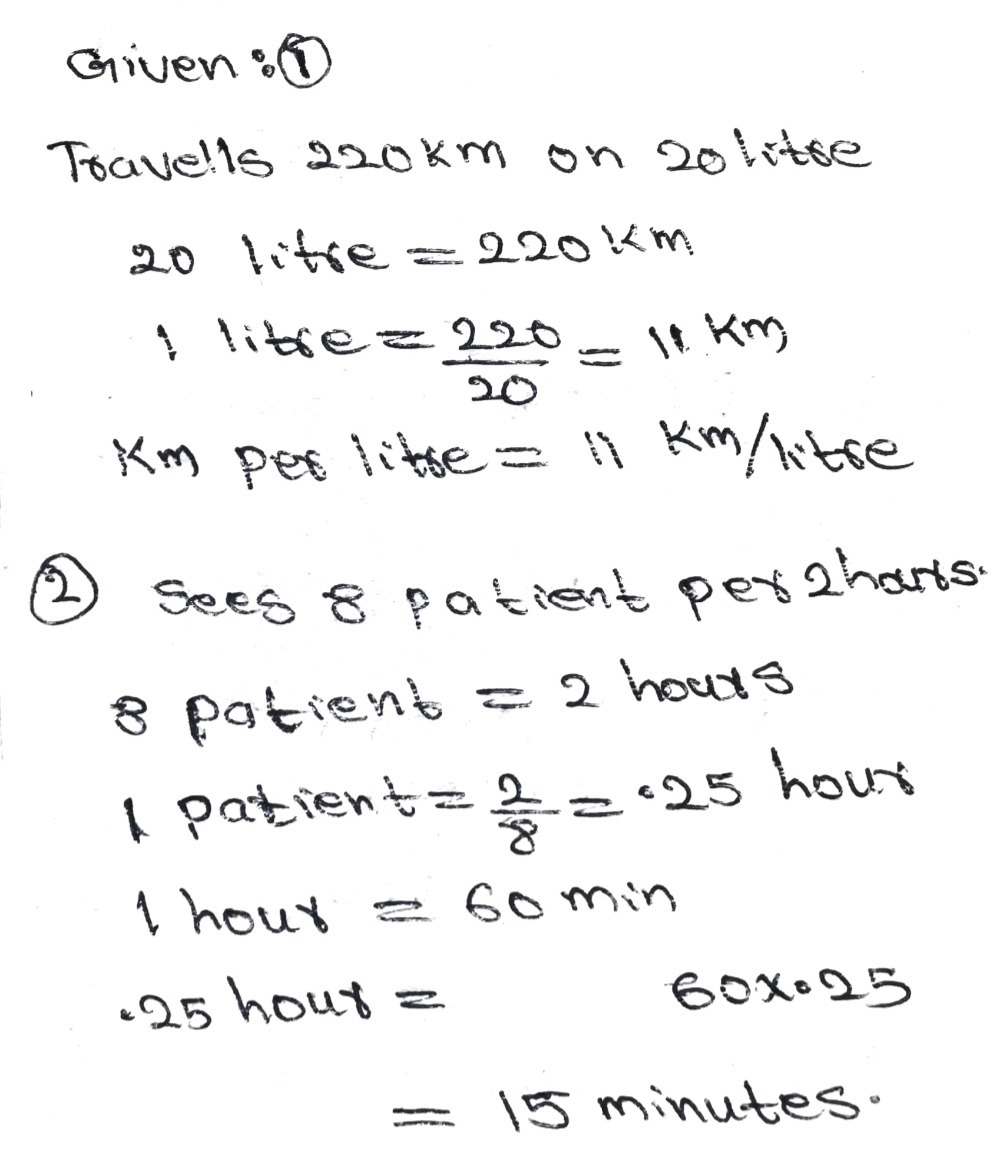 Given :①
Travells 220 km on 20 litre
20 litre = 220 km
1 litre = 220/20 = 11 km
Km per litre = 11 km/litre
② Sees 8 patient per 2 hours.
8 patient = 2 hours
1 patient = 2/8 = .25 hour
1 hour = 60 min
.25 hour = 60x.25
= 15 minutes.